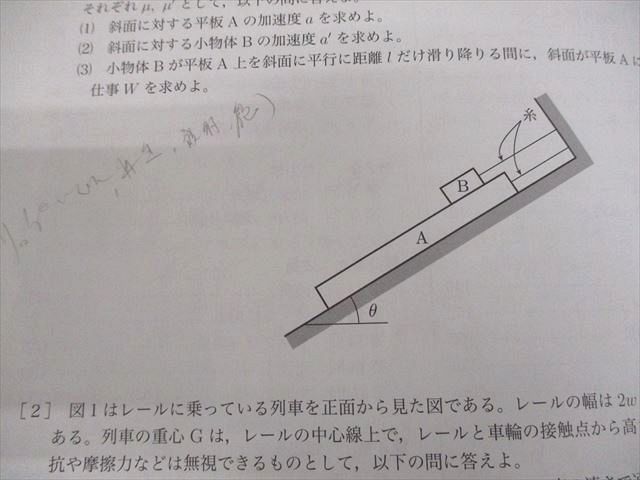 それぞれμ, μ′として, 以下の問に答えよ。
(1) 斜面に対する平板Aの加速度aを求めよ。
(2) 斜面に対する小物体Bの加速度a′を求めよ。
(3) 小物体Bが平板A上を斜面に平行に距離lだけ滑り降りる間に, 斜面が平板Aに
仕事Wを求めよ。
糸
B
A
θ
[2] 図1はレールに乗っている列車を正面から見た図である。レールの幅は2w
ある。列車の重心Gは, レールの中心線上で, レールと車輪の接触点から高
抗や摩擦力などは無視できるものとして, 以下の問に答えよ。